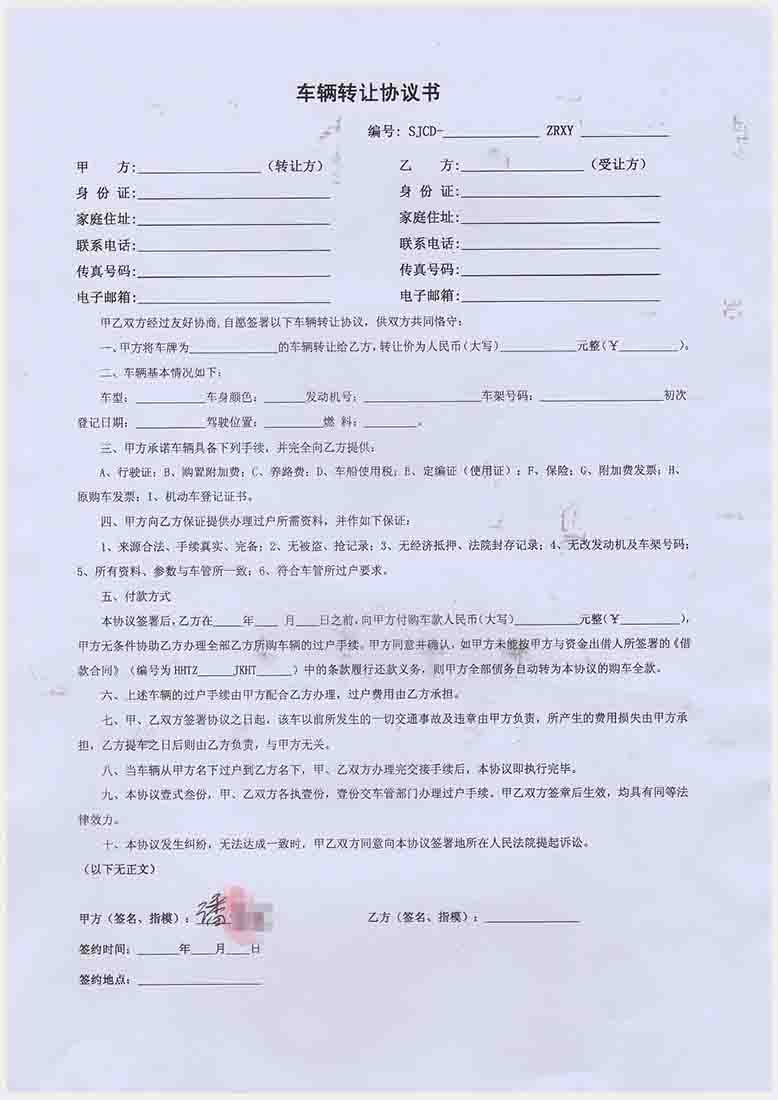 车辆转让协议书
编号: SJCD-____________ ZRXY ___________
甲 方:______________(转让方) 乙 方:______________(受让方)
身 份 证:______________ 身 份 证:______________
家庭住址:______________ 家庭住址:______________
联系电话:______________ 联系电话:______________
传真号码:______________ 传真号码:______________
电子邮箱:______________ 电子邮箱:______________
甲乙双方经过友好协商,自愿签署以下车辆转让协议，供双方共同恪守：
一、甲方将车牌为____________的车辆转让给乙方，转让价为人民币（大写）__________元整（¥________）。
二、车辆基本情况如下：
车型：__________车身颜色：______发动机号：________________车架号码：________________初次
登记日期：__________驾驶位置：________燃 料：________。
三、甲方承诺车辆具备下列手续，并完全向乙方提供：
A、行驶证；B、购置附加费；C、养路费；D、车船使用税；E、定编证（使用证）；F、保险；G、附加费发票；H、
原购车发票；I、机动车登记证书。
四、甲方向乙方保证提供办理过户所需资料，并作如下保证：
1、来源合法、手续真实、完备；2、无被盗、抢记录；3、无经济抵押、法院封存记录；4、无改发动机及车架号码；
5、所有资料、参数与车管所一致；6、符合车管所过户要求。
五、付款方式
本协议签署后，乙方在____年____月____日之前，向甲方付购车款人民币（大写）__________元整（¥________），
甲方无条件协助乙方办理全部乙方所购车辆的过户手续。甲方同意并确认，如甲方未能按甲方与资金出借人所签署的《借
款合同》（编号为HHTZ_____JKHT_____）中的条款履行还款义务，则甲方全部债务自动转为本协议的购车全款。
六、上述车辆的过户手续由甲方配合乙方办理，过户费用由乙方承担。
七、甲、乙双方签署协议之日起，该车以前所发生的一切交通事故及违章由甲方负责，所产生的费用损失由甲方承
担，乙方提车之日后则由乙方负责，与甲方无关。
八、当车辆从甲方名下过户到乙方名下，甲、乙双方办理完交接手续后，本协议即执行完毕。
九、本协议壹式叁份，甲、乙双方各执壹份，壹份交车管部门办理过户手续。甲乙双方签章后生效，均具有同等法
律效力。
十、本协议发生纠纷，无法达成一致时，甲乙双方同意向本协议签署地所在人民法院提起诉讼。
（以下无正文）
甲方（签名、指模）：潘 乙方（签名、指模）：______________
签约时间：______年____月____日
签约地点：______________